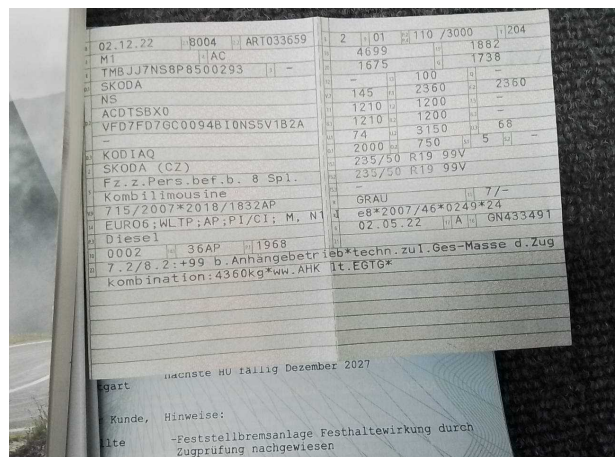 02.12.22 8004 ART033659
M1 AC
TMBJJ7NS8P8500293 -
SKODA
NS
ACDTSBX0
VFD7FD7GC0094BI0NS5V1B2A
-
KODIAQ
SKODA (CZ)
Fz.z.Pers.bef.b. 8 Spl.
Kombilimousine
715/2007*2018/1832AP
EURO6;WLTP;AP;PI/CI; M, N1
Diesel
0002 36AP 1968
7.2/8.2:+99 b.Anhängebetrieb*techn.zul.Ges-Masse d.Zug
kombination:4360kg*ww.AHK lt.EGTG*
2 01 110 /3000 204
4699 1882
1675 1738
- 100 -
145 2360 2360
1210 1200 -
1210 1200 -
74 3150 68
2000 750 5 -
235/50 R19 99V
235/50 R19 99V
-
-
GRAU 7/-
e8*2007/46*0249*24
02.05.22 A GN433491
nächste HU fällig Dezember 2027
tgart
Kunde, Hinweise:
llte -Feststellbremsanlage Festhaltewirkung durch
Zugprüfung nachgewiesen